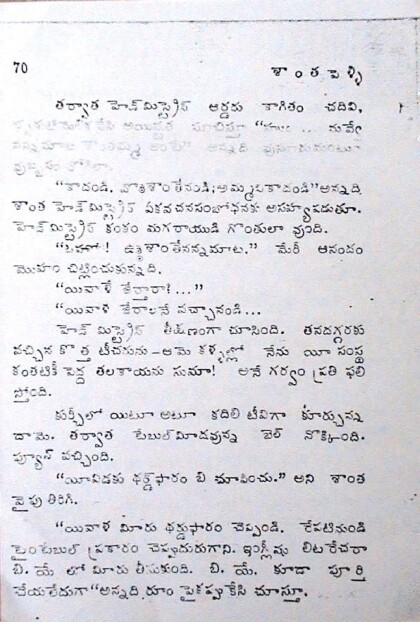 70
శాంత పెళ్ళి
తర్వాత హెడ్‌మిస్ట్రెస్ ఆర్డరు కాగితం చదివి,
సూచిస్తూ నువ్వే
అన్నది
"కాదండీ. శాంతేనండి; అమ్మడుకాదండి" అన్నది
శాంత హెడ్‌మిస్ట్రెస్ ఏకవచనసంబోధనకు అసహ్యపడుతూ.
హెడ్‌మిస్ట్రెస్ కంఠం మగరాయుడి గొంతులా వుంది.
"ఓహో! ఉత్తశాంతేనన్నమాట." మేరీ ఆనందం
మొహం చిట్లించుకున్నది.
"యివాళే కేర్తారా!..."
"యివాళ కేరాలనే వచ్చానండీ...
హెడ్ మిస్ట్రెస్ తీక్షణంగా చూసింది. తనదగ్గరకు
వచ్చిన కొత్త టీచరును—ఆమె కళ్ళల్లో నేను యీ సంస్థ
కంతటికీ పెద్ద తలకాయను సుమా! అనే గర్వం ప్రతి ఫలి
స్తోంది.
కుర్చీలో యిటూ అటూ కదిలి టీవిగా కూర్చున్న
దామె. తర్వాత టేబుల్‌మీదవున్న బెల్ నొక్కింది.
ప్యూన్ వచ్చింది.
"యీవిడకు థర్డ్‌ఫారం బి చూపించు." అని శాంత
వైపు తిరిగి.
"యివాళ మీరు థర్డుఫారం చెప్పండి. రేపటినుండి
టైంటేబుల్ ప్రకారం చెప్పుదురుగాని. ఇంగ్లీషు లిటరేచరా
బి. యే లో మీరు తీసుకుంది. బి. యే. కూడా పూర్తి
చేయలేదుగా" అన్నది రూం పైకప్పుకేసి చూస్తూ.